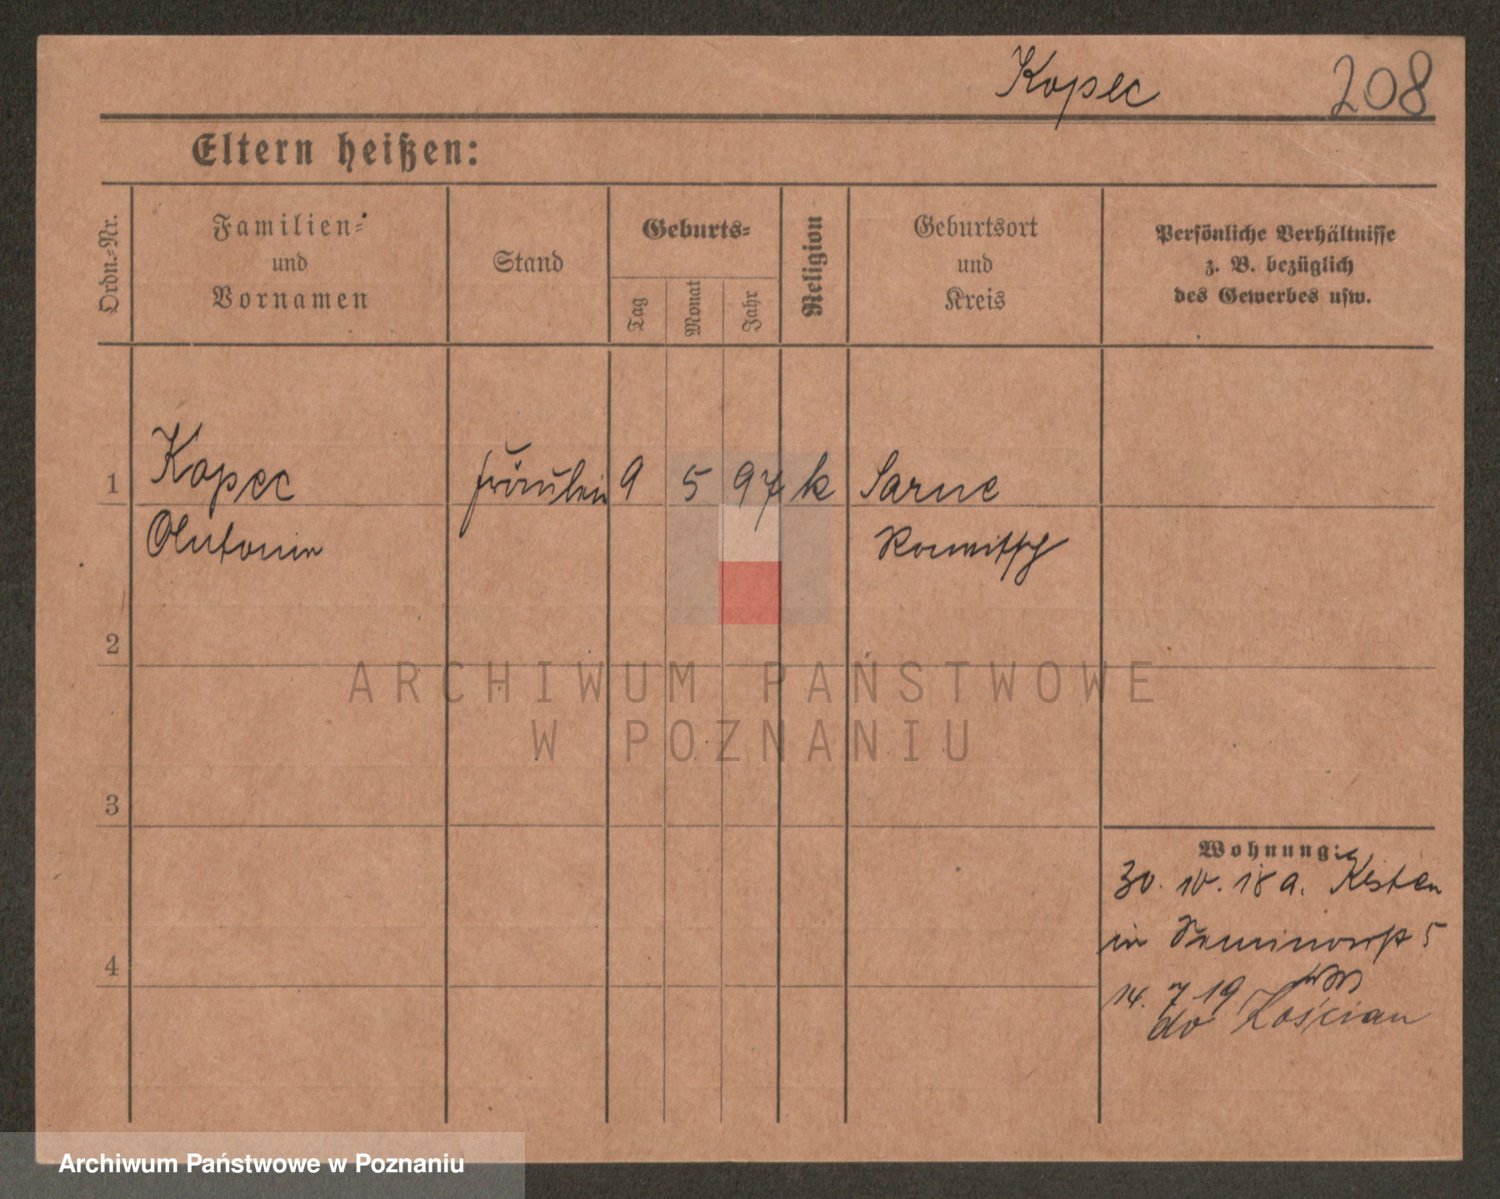 Kopec 208
Eltern heißen:
Ordn.-Nr.
Familien-
und
Vornamen
Stand
Geburts-
Tag
Monat
Jahr
Religion
Geburtsort
und
Kreis
Persönliche Verhältnisse
z. B. bezüglich
des Gewerbes usw.
1 Kopec Fräulein 9 5 97 k Sarne
Antonie Rawitsch
2
3
4
Wohnung:
30. 10. 18 a. Kosten
in Seminarstr 5
14. 7 19
do Kościan
ARCHIWUM PAŃSTWOWE
W POZNANIU
Archiwum Państwowe w Poznaniu